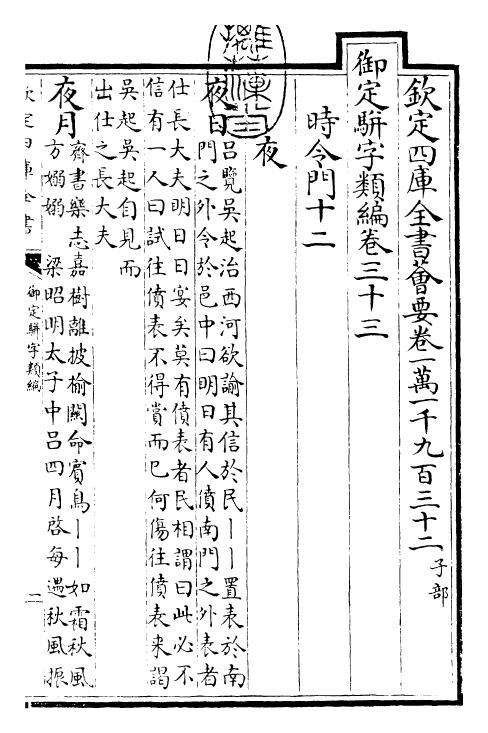 欽定四庫全書薈要卷一萬一千九百三十二子部
御定駢字類編卷三十三
時令門十二
夜
夜日
呂覽吳起治西河欲諭其信於民丨丨置表於南
門之外令於邑中曰明日有人僨南門之外表者
仕長大夫明日日宴矣莫有僨表者民相謂曰此必不
信有一人曰試往僨表不得賞而已何傷往僨表來謁
吳起吳起自見而
出仕之長大夫
夜月
齊書樂志嘉樹離披榆關命賓鳥丨丨如霜秋風
方嫋嫋 梁昭明太子中呂四月啓每遇秋風振
欽定四庫全書
御定駢字類編
一